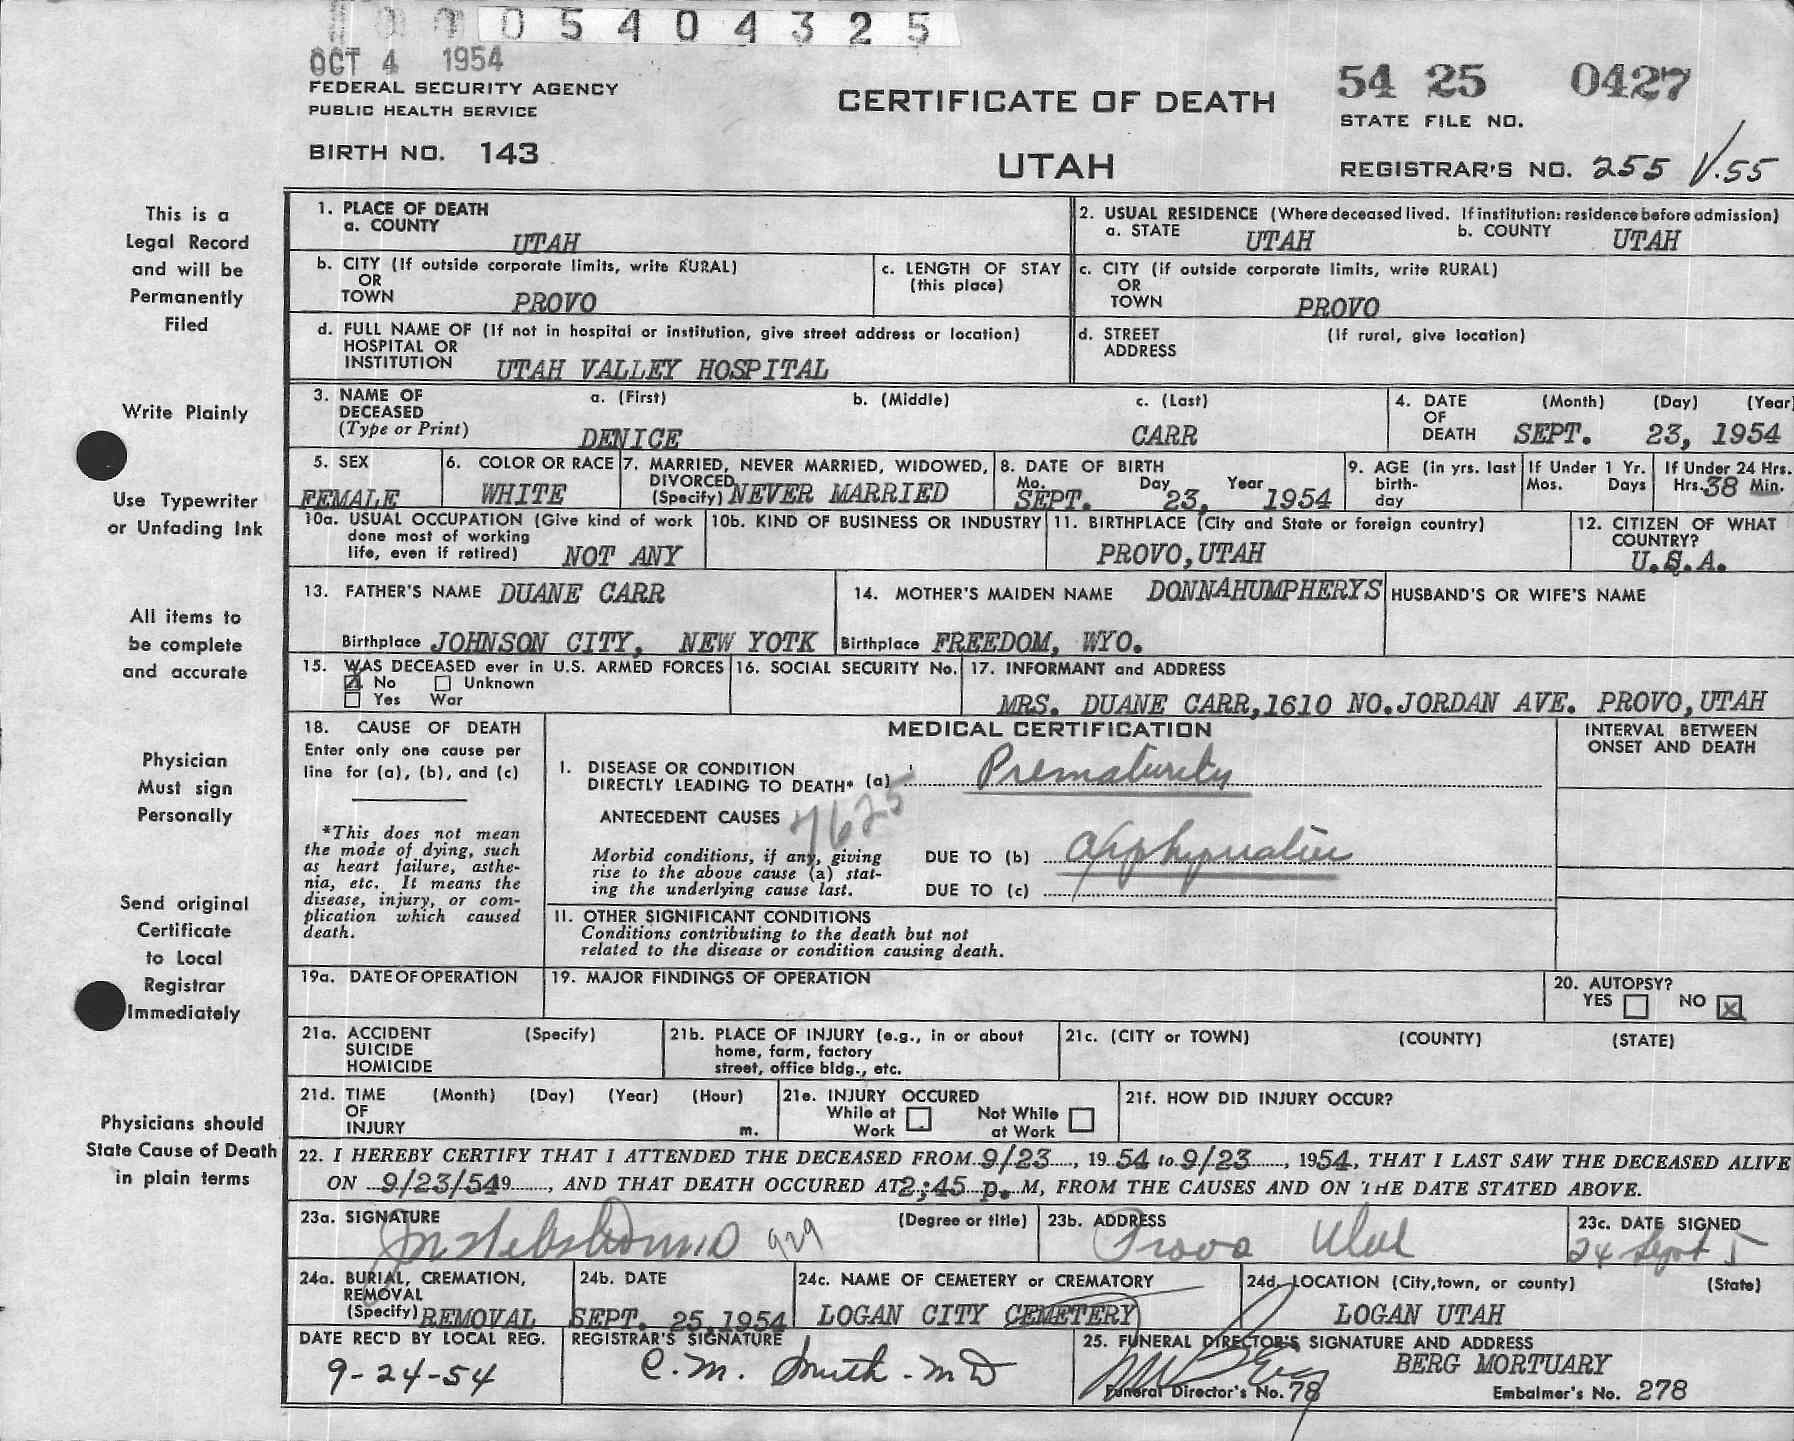 0 5 4 0 4 3 2 5
OCT 4 1954
FEDERAL SECURITY AGENCY
PUBLIC HEALTH SERVICE
BIRTH NO. 143
CERTIFICATE OF DEATH
UTAH
54 25 0427
STATE FILE NO.
REGISTRAR'S NO. 255 V.55
This is a
Legal Record
and will be
Permanently
Filed
Write Plainly
Use Typewriter
or Unfading Ink
All items to
be complete
and accurate
Physician
Must sign
Personally
Send original
Certificate
to Local
Registrar
Immediately
Physicians should
State Cause of Death
in plain terms
1. PLACE OF DEATH
a. COUNTY UTAH
2. USUAL RESIDENCE (Where deceased lived. If institution: residence before admission)
a. STATE UTAH b. COUNTY UTAH
b. CITY (If outside corporate limits, write RURAL)
OR
TOWN PROVO
c. LENGTH OF STAY
(this place)
c. CITY (if outside corporate limits, write RURAL)
OR
TOWN PROVO
d. FULL NAME OF (If not in hospital or institution, give street address or location)
HOSPITAL OR
INSTITUTION UTAH VALLEY HOSPITAL
d. STREET (If rural, give location)
ADDRESS
3. NAME OF a. (First) b. (Middle) c. (Last)
DECEASED
(Type or Print) DENICE CARR
4. DATE (Month) (Day) (Year)
OF
DEATH SEPT. 23, 1954
5. SEX
FEMALE
6. COLOR OR RACE
WHITE
7. MARRIED, NEVER MARRIED, WIDOWED,
DIVORCED
(Specify) NEVER MARRIED
8. DATE OF BIRTH
Mo. Day Year
SEPT. 23, 1954
9. AGE (in yrs. last
birth-
day
If Under 1 Yr.
Mos. Days
If Under 24 Hrs.
Hrs. 38 Min.
10a. USUAL OCCUPATION (Give kind of work
done most of working
life, even if retired) NOT ANY
10b. KIND OF BUSINESS OR INDUSTRY
11. BIRTHPLACE (City and State or foreign country)
PROVO, UTAH
12. CITIZEN OF WHAT
COUNTRY?
U.S.A.
13. FATHER'S NAME DUANE CARR
Birthplace JOHNSON CITY, NEW YOTK
14. MOTHER'S MAIDEN NAME DONNAHUMPHERYS
Birthplace FREEDOM, WYO.
HUSBAND'S OR WIFE'S NAME
15. WAS DECEASED ever in U.S. ARMED FORCES
X No Unknown
Yes War
16. SOCIAL SECURITY No.
17. INFORMANT and ADDRESS
MRS. DUANE CARR, 1610 NO. JORDAN AVE. PROVO, UTAH
18. CAUSE OF DEATH
Enter only one cause per
line for (a), (b), and (c)
*This does not mean
the mode of dying, such
as heart failure, asthe-
nia, etc. It means the
disease, injury, or com-
plication which caused
death.
MEDICAL CERTIFICATION
I. DISEASE OR CONDITION
DIRECTLY LEADING TO DEATH* (a) Prematurity
ANTECEDENT CAUSES 7625
Morbid conditions, if any, giving
rise to the above cause (a) stat-
ing the underlying cause last.
DUE TO (b)
DUE TO (c)
II. OTHER SIGNIFICANT CONDITIONS
Conditions contributing to the death but not
related to the disease or condition causing death.
INTERVAL BETWEEN
ONSET AND DEATH
19a. DATE OF OPERATION
19. MAJOR FINDINGS OF OPERATION
20. AUTOPSY?
YES NO X
21a. ACCIDENT (Specify)
SUICIDE
HOMICIDE
21b. PLACE OF INJURY (e.g., in or about
home, farm, factory
street, office bldg., etc.
21c. (CITY or TOWN) (COUNTY) (STATE)
21d. TIME (Month) (Day) (Year) (Hour)
OF
INJURY m.
21e. INJURY OCCURED
While at Work
Not While at Work
21f. HOW DID INJURY OCCUR?
22. I HEREBY CERTIFY THAT I ATTENDED THE DECEASED FROM 9/23, 1954 to 9/23, 1954, THAT I LAST SAW THE DECEASED ALIVE
ON 9/23/54 19, AND THAT DEATH OCCURED AT 2:45 p. M, FROM THE CAUSES AND ON THE DATE STATED ABOVE.
23a. SIGNATURE (Degree or title)
929
23b. ADDRESS
Provo Utah
23c. DATE SIGNED
24 Sept 5
24a. BURIAL, CREMATION,
REMOVAL
(Specify) REMOVAL
24b. DATE
SEPT. 25, 1954
24c. NAME OF CEMETERY or CREMATORY
LOGAN CITY CEMETERY
24d. LOCATION (City, town, or county) (State)
LOGAN UTAH
DATE REC'D BY LOCAL REG.
9-24-54
REGISTRAR'S SIGNATURE
C. M. Smith - MD
25. FUNERAL DIRECTOR'S SIGNATURE AND ADDRESS
BERG MORTUARY
Funeral Director's No. 78
Embalmer's No. 278